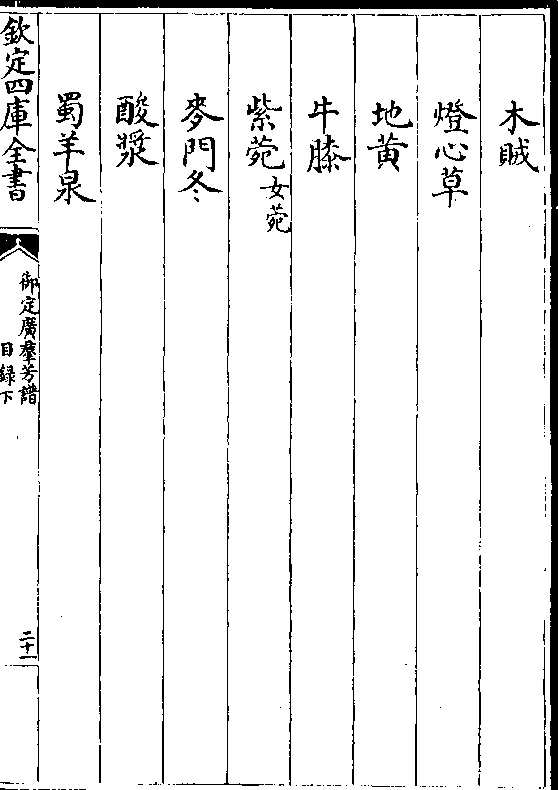 木賊
燈心草
地黄
牛膝
紫菀女菀
麥門冬
酸漿
蜀羊泉
欽定四庫全書
御定廣羣芳譜
目録下
二十一